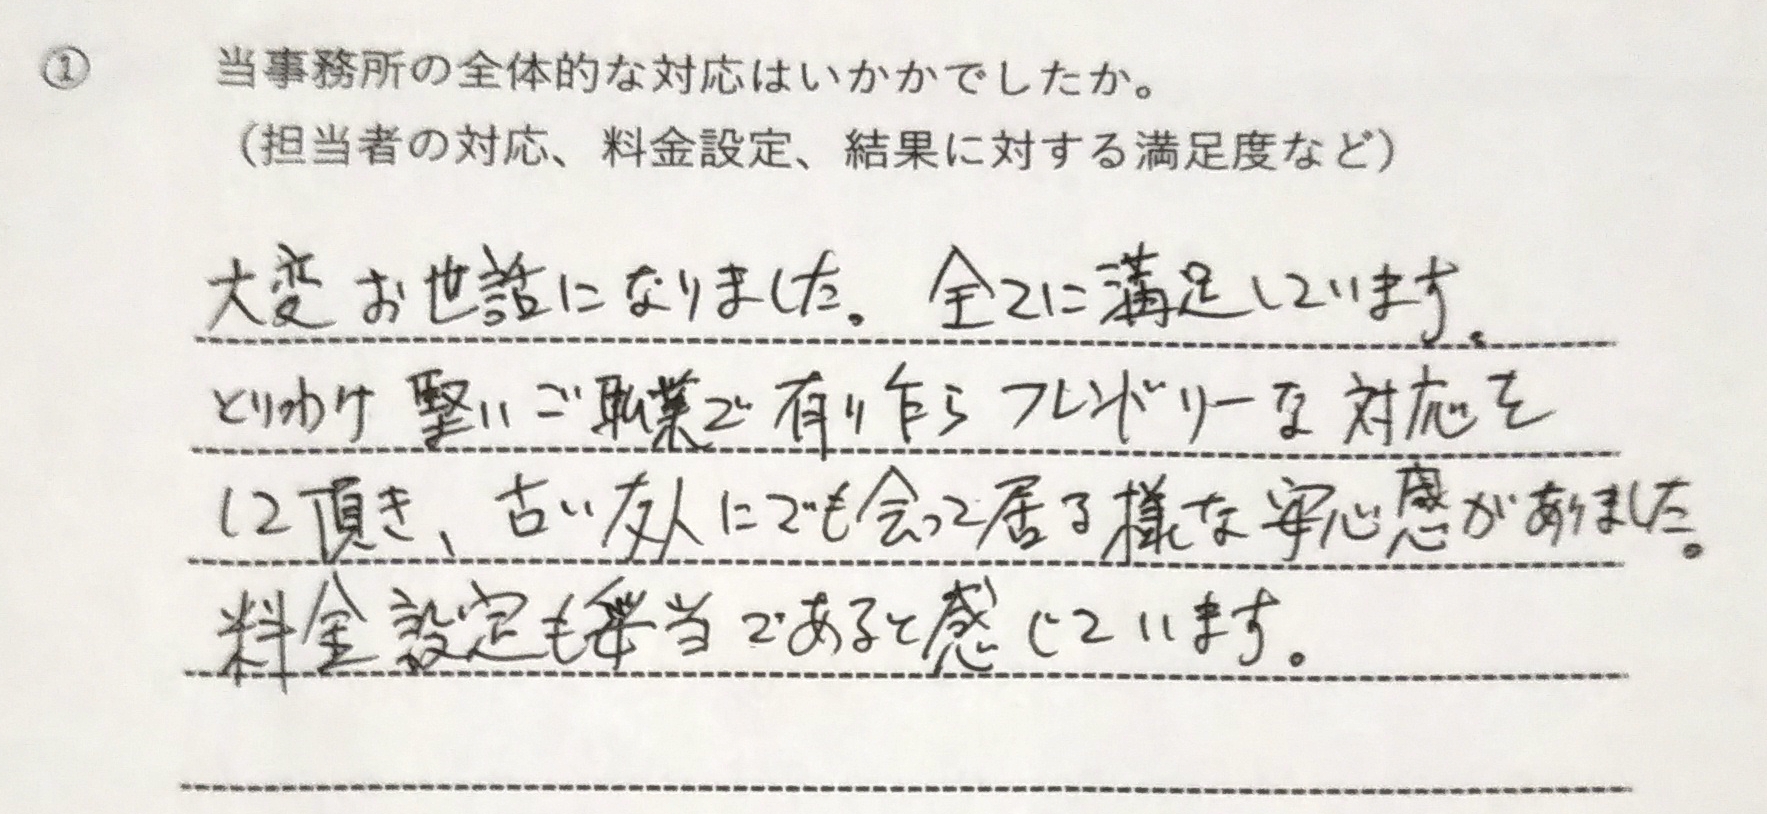 ① 当事務所の全体的な対応はいかかでしたか。
（担当者の対応、料金設定、結果に対する満足度など）
大変お世話になりました。全てに満足しています。
とりわけ堅いご職業で有り乍らフレンドリーな対応を
して頂き、古い友人にでも会って居る様な安心感がありました。
料金設定も妥当であると感じています。